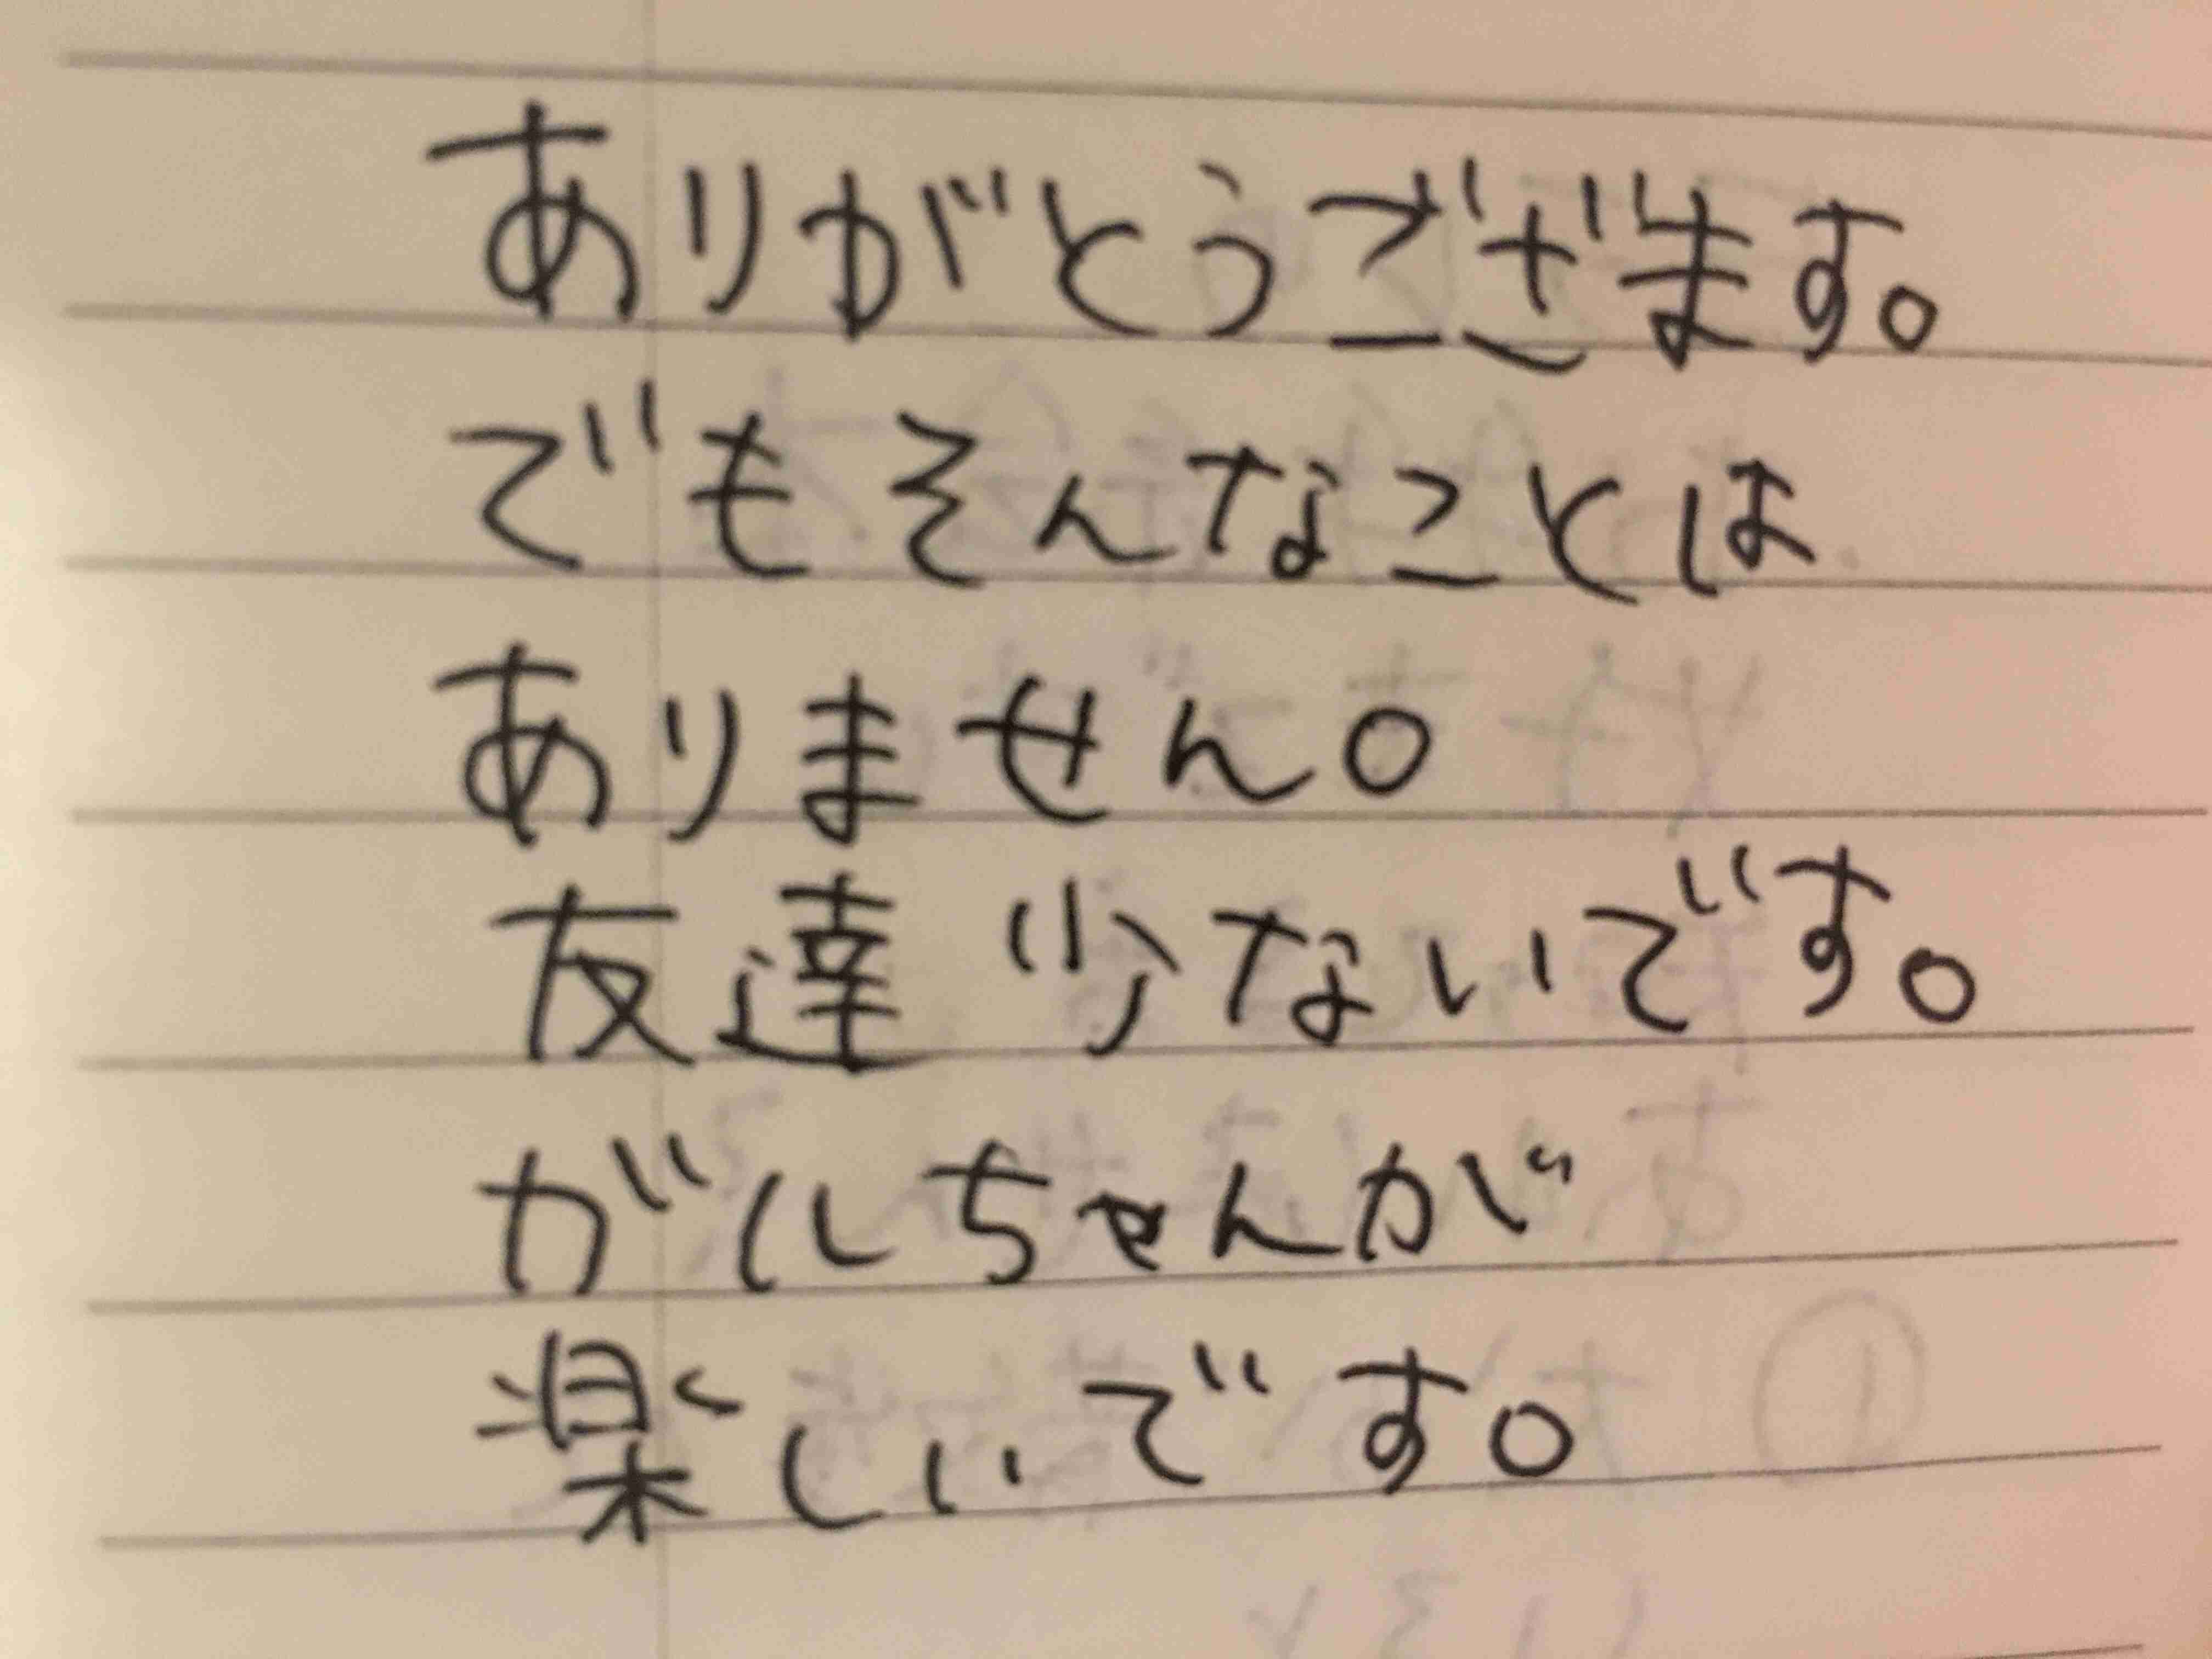 ありがとうござます。
でもそんなことは
ありません。
友達少ないです。
ガルちゃんが
楽しいです。